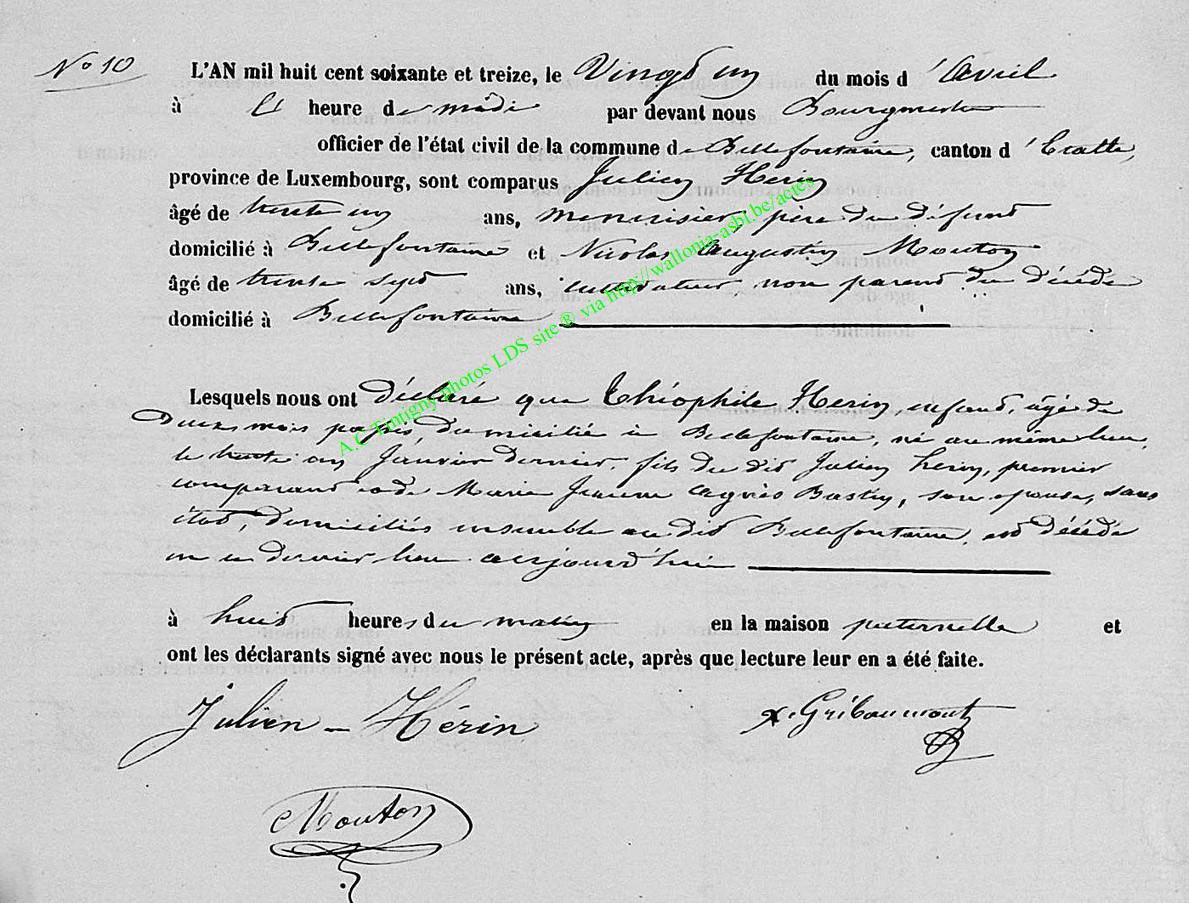 N° 10
L'AN mil huit cent soixante et treize, le Vingt un du mois d'Avril
à heure de midi par devant nous Bourgmestre
officier de l'état civil de la commune de Bellefontaine, canton d'Etalle,
province de Luxembourg, sont comparus Julien Herin
âgé de trente un ans, menuisier, père du défunt
domicilié à Bellefontaine et Nicolas Augustin Mouton
âgé de trente sept ans, cultivateur, non parent du décédé
domicilié à Bellefontaine
Lesquels nous ont déclaré que Théophile Herin, enfant, âgé de
Deux mois passés, domicilié à Bellefontaine, né au même lieu,
le trente un Janvier dernier, fils du dit Julien Herin, premier
comparant et de Marie Jeanne Agnès Bastin, son épouse, sans
état, domiciliés ensemble au dit Bellefontaine, est décédé
en ce dernier lieu aujourd'hui
à huit heures du matin en la maison paternelle et
ont les déclarants signé avec nous le présent acte, après que lecture leur en a été faite.
Julien - Hérin x. Gribaumont
Mouton
A.C Tintigny photos LDS site ® via http://wallonia-asbl.be/actes